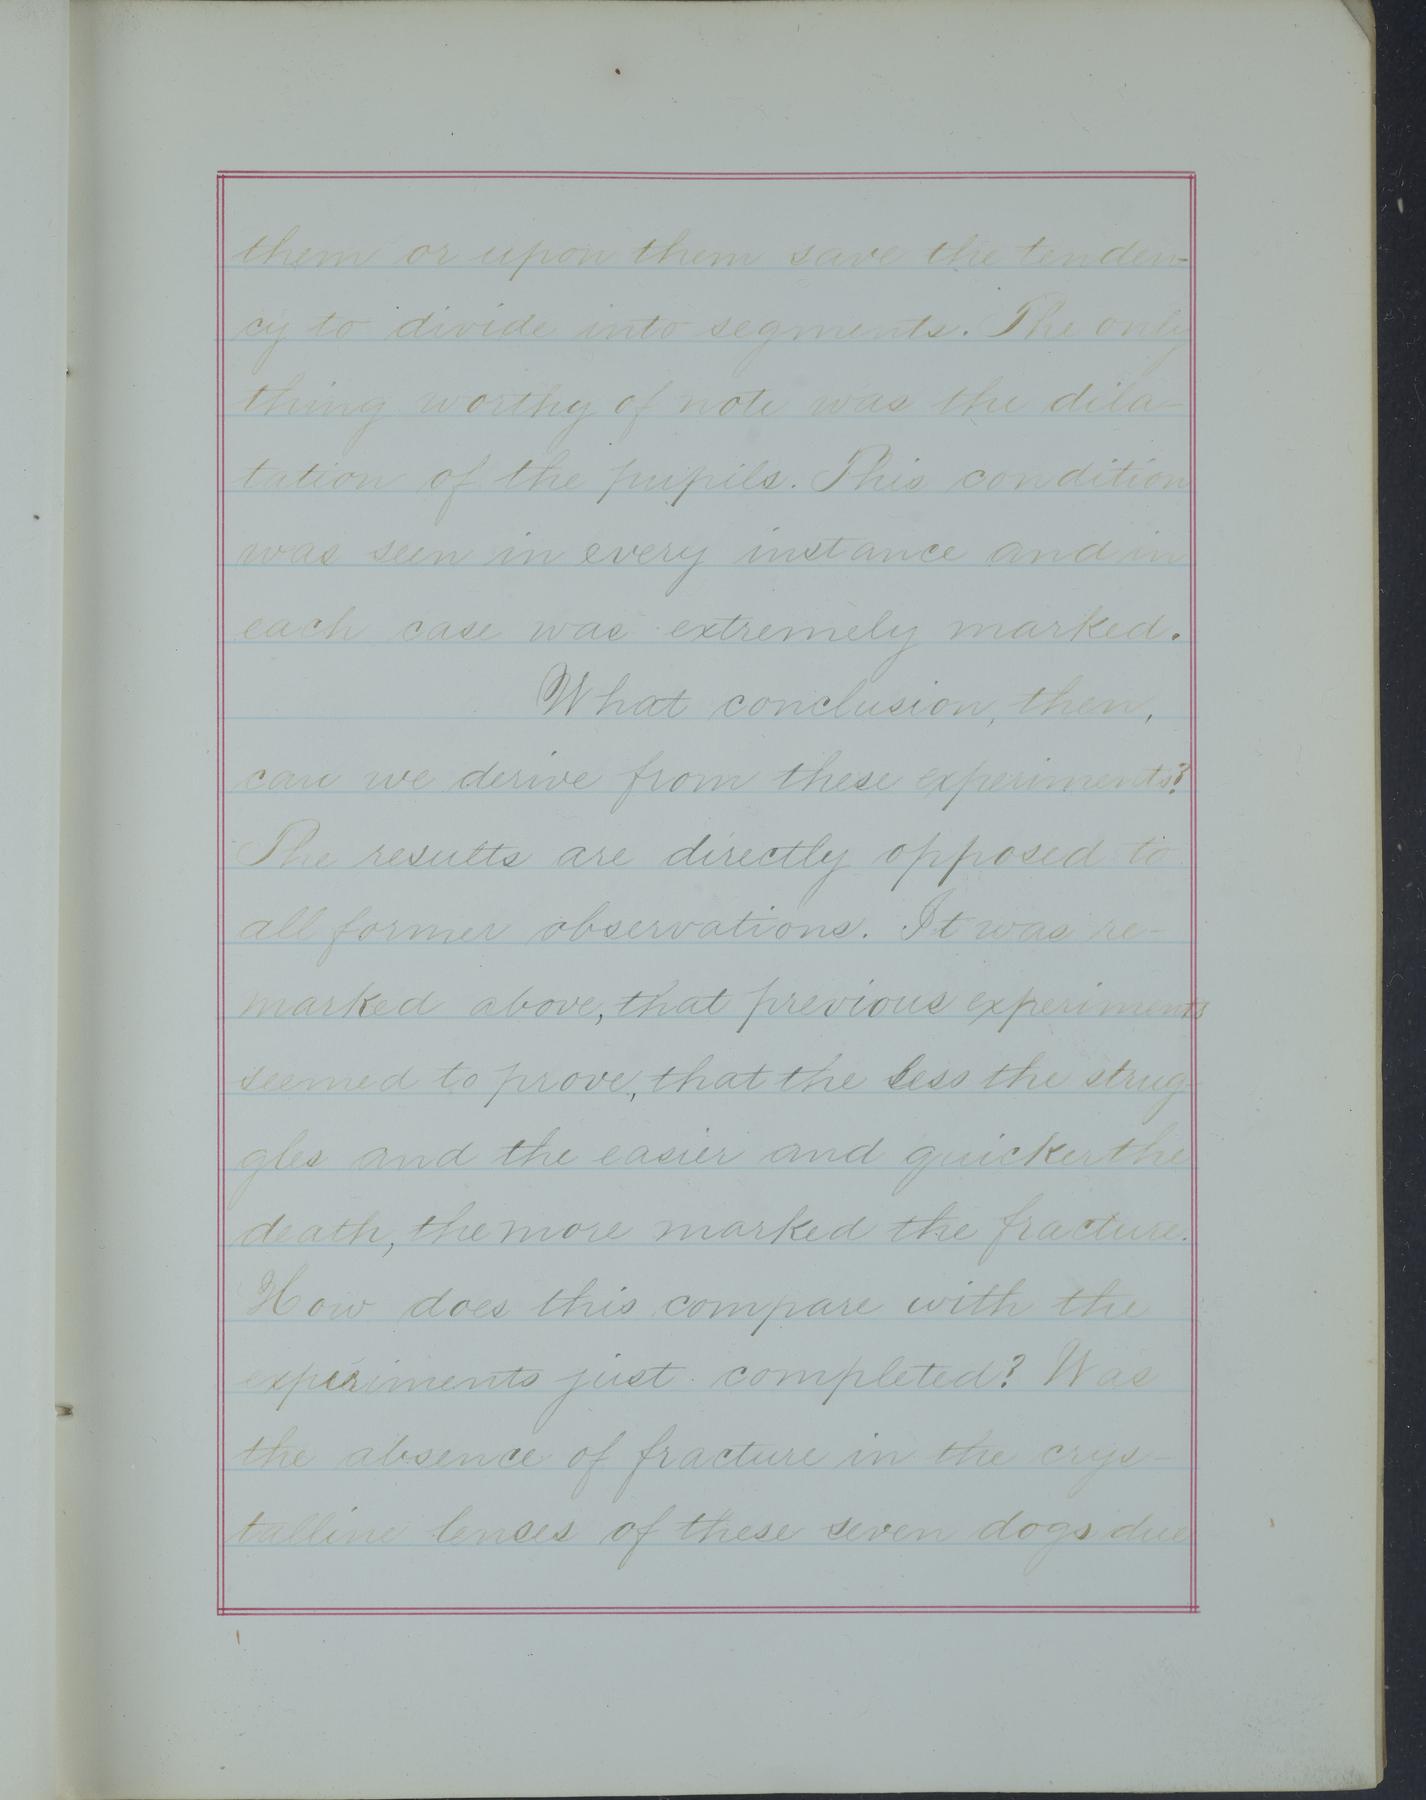 them or upon them save the tenden-
cy to divide into segments. The only
thing worthy of note was the dila-
tation of the pupils. This condition
was seen in every instance and in
each case was extremely marked.
What conclusion, then,
can we derive from these experiments?
The results are directly opposed to
all former observations. It was re-
marked above, that previous experiments
seemed to prove, that the less the strug-
gles and the easier and quicker the
death, the more marked the fracture.
How does this compare with the
experiments just completed? Was
the absence of fracture in the crys-
talline lenses of these seven dogs due